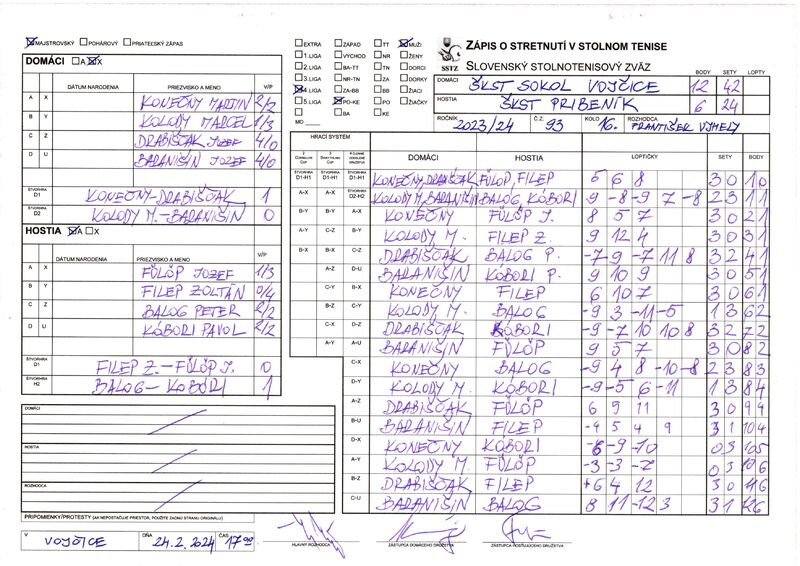 MAJSTROVSKÝ POHÁROVÝ PRIATEĽSKÝ ZÁPAS
DOMÁCI A X
DÁTUM NARODENIA PRIEZVISKO A MENO V/P
A X KONEČNÝ MARTIN 2/2
B Y KOLODY MARCEL 1/3
C Z DRABIŠČAK JOZEF 4/0
D U BARANIŠIN JOZEF 4/0
ŠTVORHRA D1 KONEČNY-DRABIŠČAK 1
ŠTVORHRA D2 KOLODY M.-BARANIŠIN 0
HOSTIA A X
DÁTUM NARODENIA PRIEZVISKO A MENO V/P
A X FÜLÖP JOZEF 1/3
B Y FILEP ZOLTÁN 0/4
C Z BALOG PETER 2/2
D U KÓBORI PAVOL 2/2
ŠTVORHRA D1 FILEP Z.-FÜLÖP J. 0
ŠTVORHRA H2 BALOG-KÓBORI 1
DOMÁCI
HOSTIA
ROZHODCA
PRIPOMIENKY/PROTESTY (AK NEPOSTAČUJE PRIESTOR, POUŽITE ZADNÚ STRANU ORIGINÁLU)
V VOJČICE DŇA 24.2.2024 ČAS 17 00
EXTRA ZÁPAD TT MUŽI
1. LIGA VÝCHOD NR ŽENY
2. LIGA BA-TT TN DORCI
3. LIGA NR-TN ZA DORKY
4. LIGA ZA-BB BB ŽIACI
5. LIGA PO-KE PO ŽIAČKY
MO BA KE
SSTZ
ZÁPIS O STRETNUTÍ V STOLNOM TENISE
SLOVENSKÝ STOLNOTENISOVÝ ZVÄZ
BODY SETY LOPTY
DOMÁCI ŠKST SOKOL VOJČICE 12 42
HOSTIA ŠKST PRIBENÍK 6 24
ROČNÍK 2023/24 Č.Z. 93 KOLO 16. ROZHODCA FRANTIŠEK VYHELY
HRACÍ SYSTÉM
DOMÁCI HOSTIA LOPTIČKY SETY BODY
ŠTVORHRA D1-H1 ŠTVORHRA D1-H1 KONEČNY, DRABIŠČAK FÜLÖP, FILEP 5 6 8 3 0 1 0
A-X A-X ŠTVORHRA D2-H2 KOLODY M, BARANIŠIN BALOG, KÓBORI 9 -8 -9 7 -8 2 3 1 1
B-Y B-Y A-X KONEČNY FÜLÖP J. 8 5 7 3 0 2 1
A-Y C-Z B-Y KOLODY M. FILEP Z. 9 12 4 3 0 3 1
B-X B-X C-Z DRABIŠČAK BALOG P. -7 9 -7 11 8 3 2 4 1
A-Z D-U BARANIŠIN KÓBORI P. 9 10 9 3 0 5 1
C-Y B-X KONEČNY FILEP 6 10 7 3 0 6 1
B-Z C-Y KOLODY M. BALOG -9 3 -11 -5 1 3 6 2
C-X D-Z DRABIŠČAK KÓBORI -9 -7 10 10 8 3 2 7 2
A-Y A-U BARANIŠIN FÜLÖP 9 5 7 3 0 8 2
C-X KONEČNY BALOG -9 4 8 -10 -8 2 3 8 3
D-Y KOLODY M. KÓBORI -9 -5 6 -11 1 3 8 4
A-Z DRABIŠČAK FÜLÖP 6 9 11 3 0 9 4
B-U BARANIŠIN FILEP -4 5 4 9 3 1 10 4
D-X KONEČNY KÓBORI -6 -9 -10 0 3 10 5
A-Y KOLODY M. FÜLÖP -3 -3 -7 0 3 10 6
B-Z DRABIŠČAK FILEP 6 4 12 3 0 11 6
C-U BARANIŠIN BALOG 8 11 -12 3 3 1 12 6
HLAVNÝ ROZHODCA ZÁSTUPCA DOMÁCEHO DRUŽSTVA ZÁSTUPCA HOSŤUJÚCEHO DRUŽSTVA